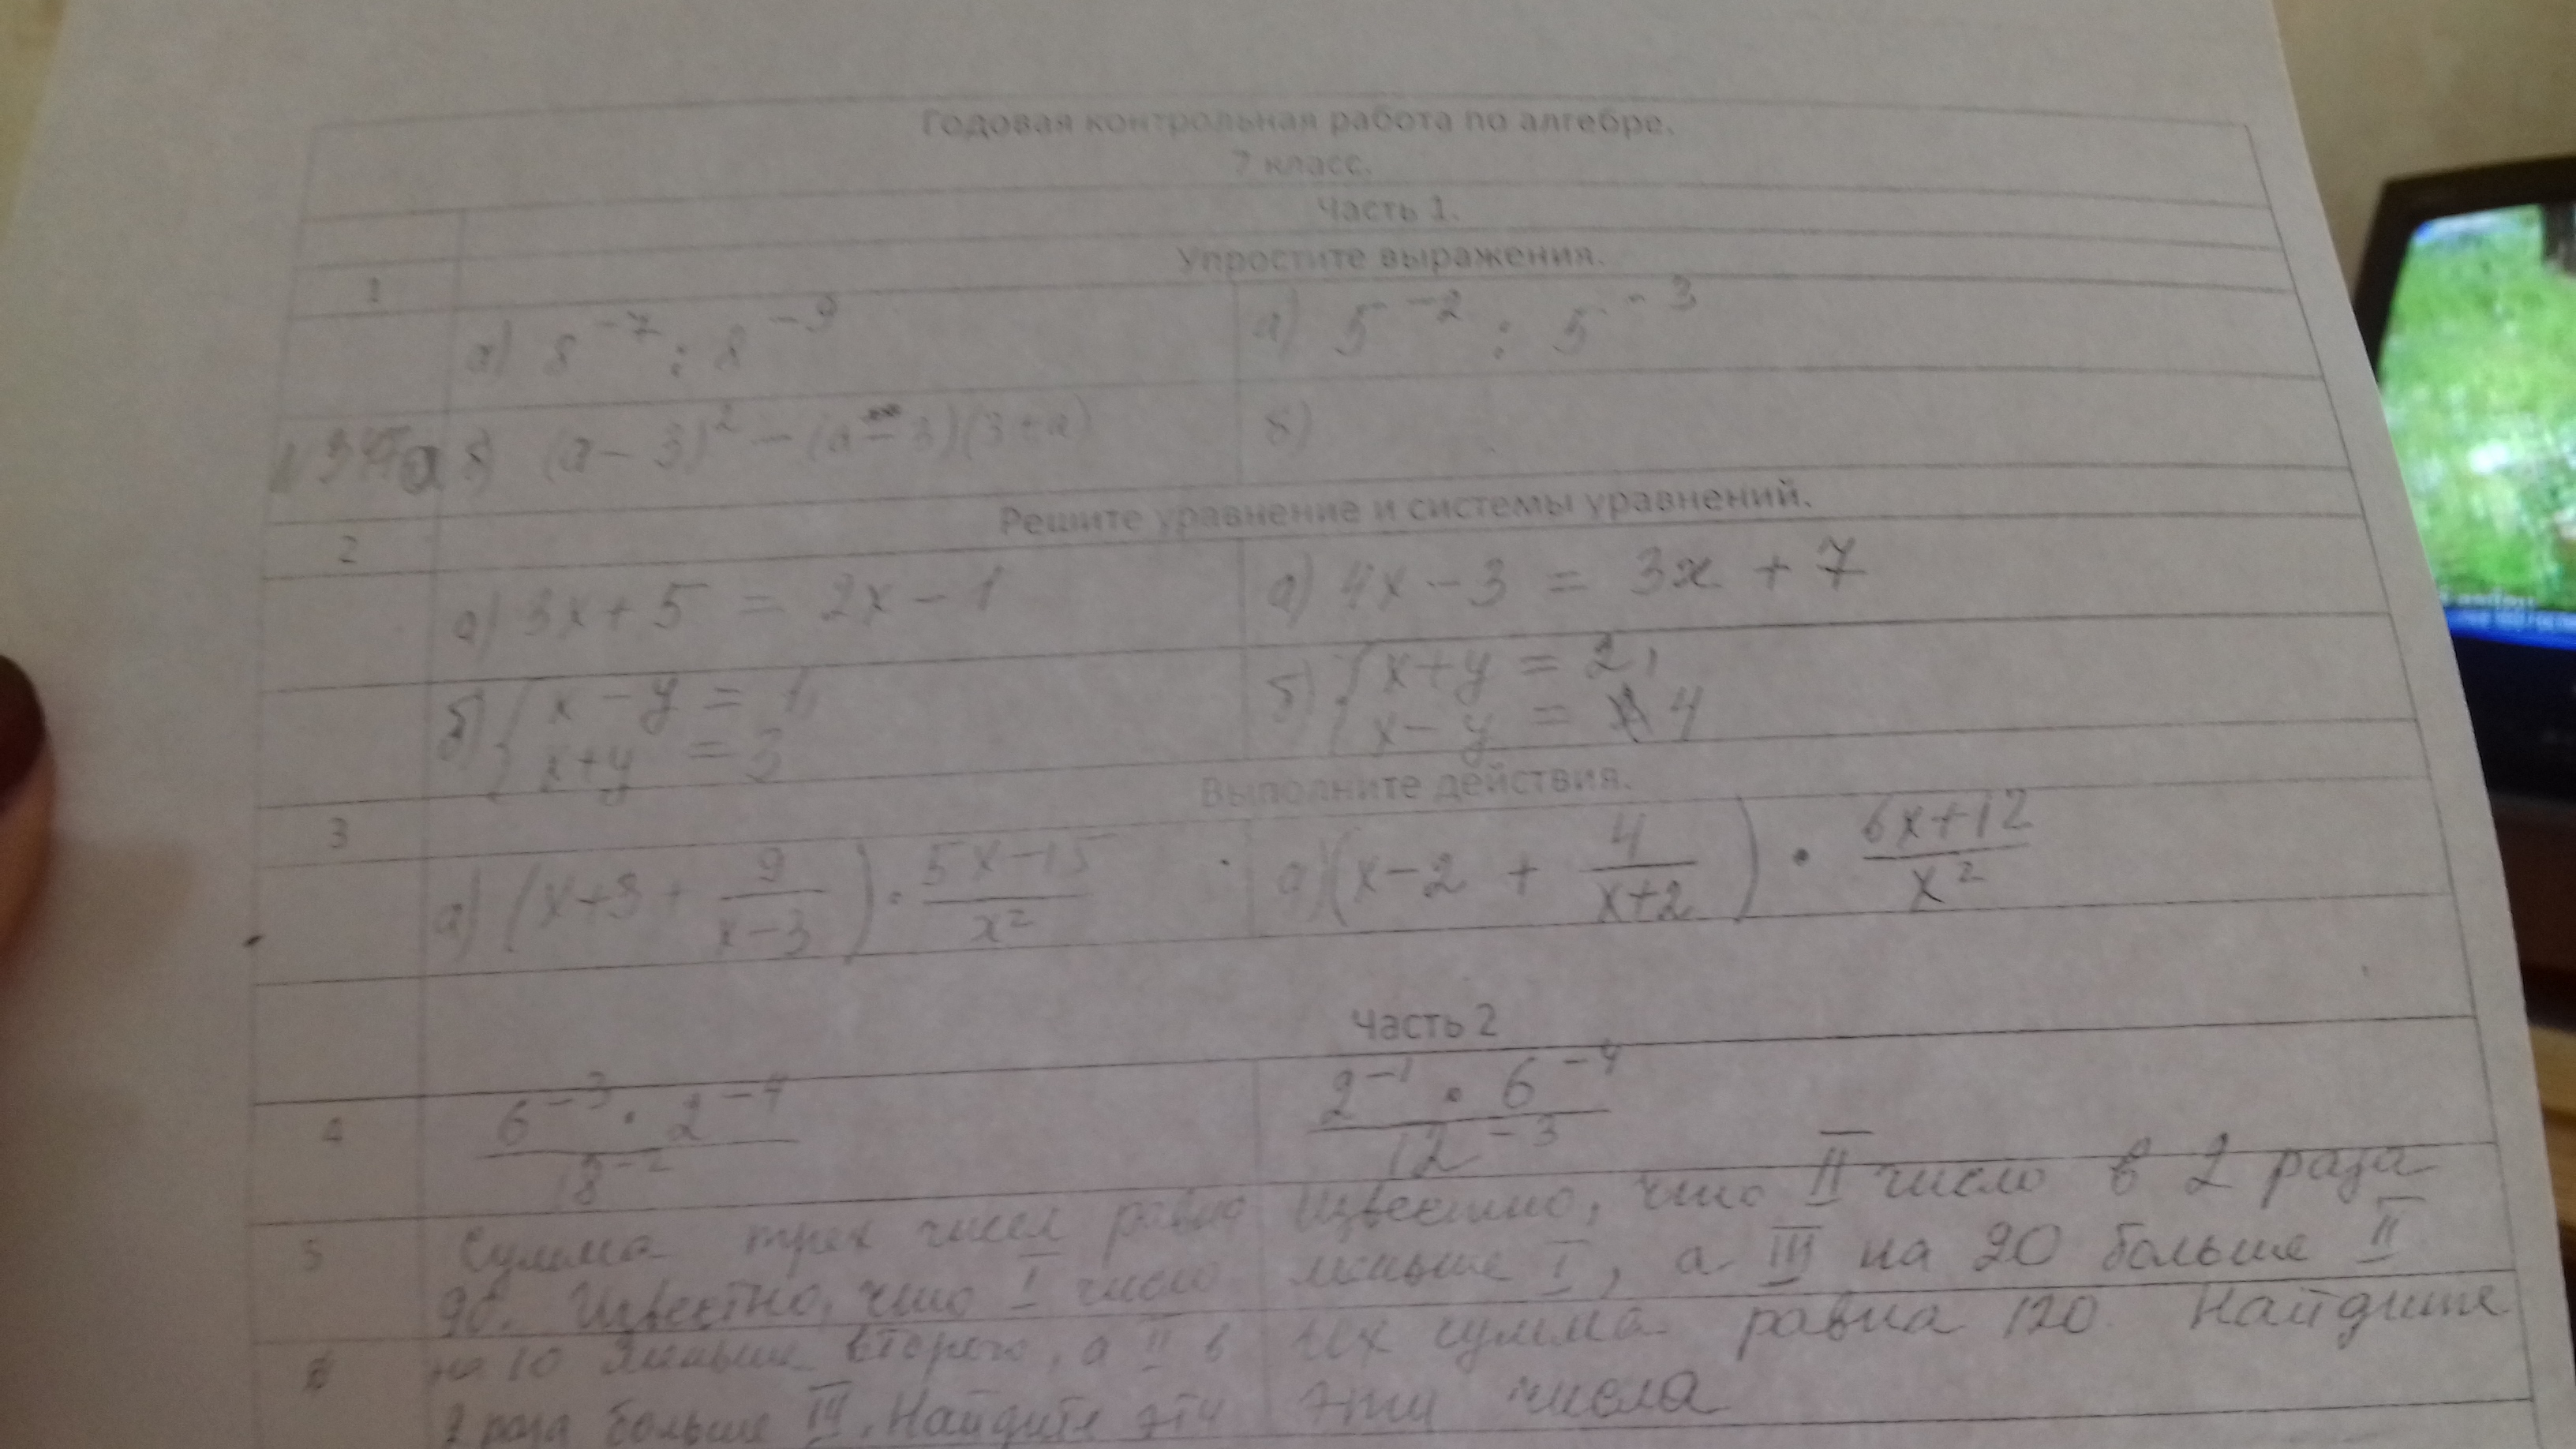 Годовая контрольная работа по алгебре.
7 класс.
Часть 1.
1 Упростите выражения.
а) 8⁻⁷ : 8⁻⁹ а) 5⁻² : 5⁻³
б) (а - 3)² - (а - 3)(3 + а) б)
2 Решите уравнение и системы уравнений.
а) 3x + 5 = 2x - 1 а) 4x - 3 = 3x + 7
б) { x - y = 1, б) { x + y = 2,
x + y = 3 x - y = 4
3 Выполните действия.
а) (x + 3 + 9/(x - 3)) · (5x - 15)/x² а) (x - 2 + 4/(x + 2)) · (6x + 12)/x²
Часть 2
4 (6⁻³ · 2⁻⁴)/18⁻² (2⁻¹ · 6⁻⁴)/12⁻³
5 Сумма трех чисел равна Известно, что II число в 2 раза
Известно, что I число меньше I, а III на 20 больше II
на 10 меньше второго, а II в Их сумма равна 120. Найдите
2 раза больше III. Найдите эти эти числа